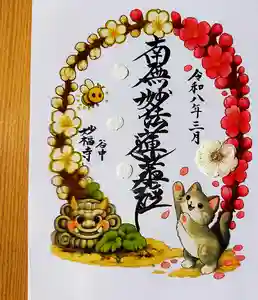 令和八年三月
南無妙法蓮華経
谷中
妙福寺